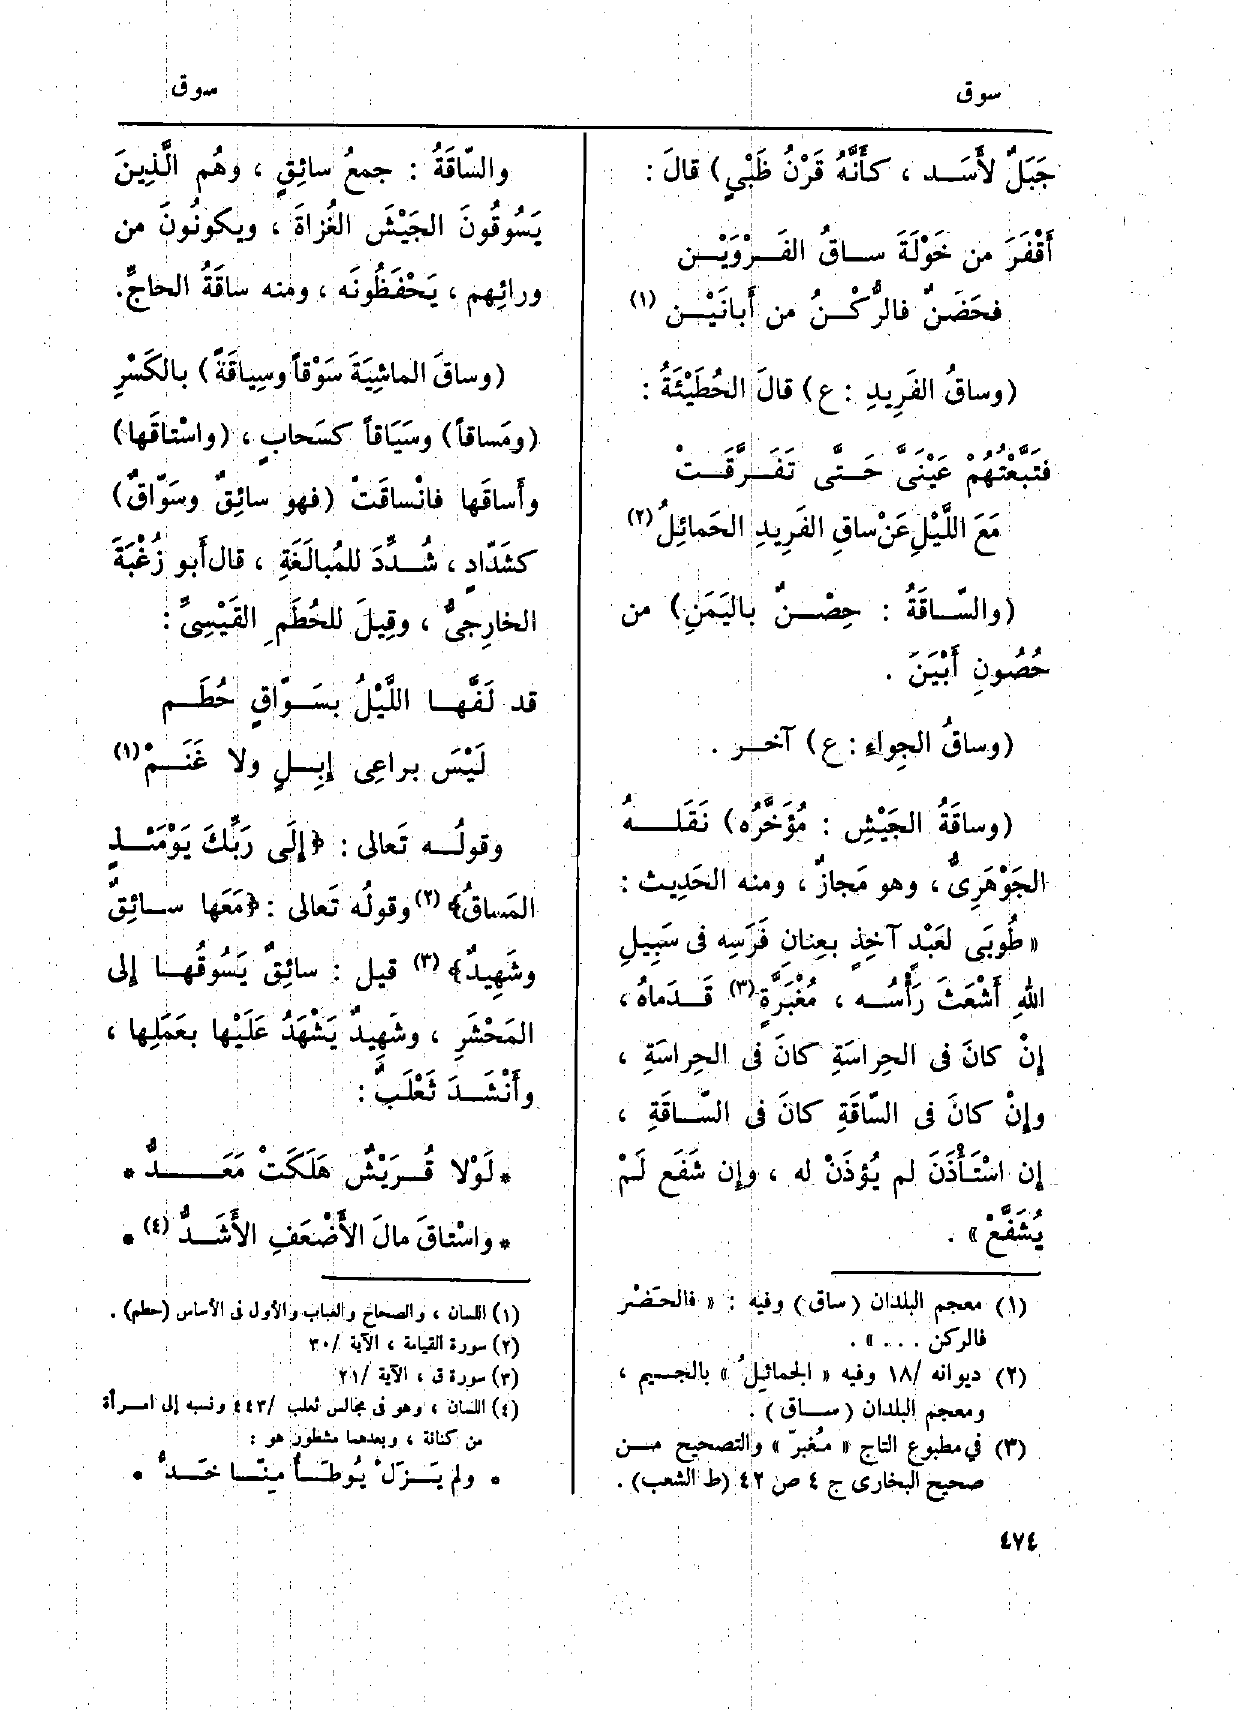 سوق
سوق
جَبَلٌ لأَسَد ، كأَنَّهُ قَرْنُ ظَبْيٍ) قالَ :
أَقْفَرَ من خَوْلَةَ ساقُ الفَرْوَيْن
فحَضَنٌ فالرُّكْنُ من أَبانَيْن (١)
(وساقُ الفَرِيدِ : ع) قالَ الحُطَيْئَةُ :
فتَبَّعْتُهُمْ عَيْنَىَّ حَتَّى تَفَرَّقَتْ
مَعَ اللَّيْلِ عَنْ ساقِ الفَرِيدِ الحَمائِلُ (٢)
(والسّاقَةُ : حِصْنٌ باليَمَنِ) من
حُصُونِ أَبْيَنَ .
(وساقُ الجِواءِ : ع) آخر .
(وساقَةُ الجَيْشِ : مُؤَخَّرُه) نَقَلَهُ
الجَوْهَرِىُّ ، وهو مَجازٌ ، ومنه الحَدِيث :
« طُوبَى لعَبْدٍ آخِذٍ بعِنانِ فَرَسِه فى سَبِيلِ
اللهِ أَشْعَثَ رَأْسُه ، مُغْبَرَّةٍ (٣) قَدَماهُ ،
إِنْ كانَ فى الحِراسَةِ كانَ فى الحِراسَةِ ،
وإِنْ كانَ فى السّاقَةِ كانَ فى السّاقَةِ ،
إن اسْتَأْذَنَ لم يُؤذَنْ له ، وإن شَفَع لَمْ
يُشَفَّعْ » .
(١) معجم البلدان (ساق) وفيه : « فالحَضْر
فالركن . . . » .
(٢) ديوانه /١٨ وفيه « الجمائِيلُ » بالجيم ،
ومعجم البلدان (ساق) .
(٣) في مطبوع التاج « مُغبرّ » والتصحيح من
صحيح البخارى ج ٤ ص ٤٢ (ط الشعب) .
والسّاقَةُ : جمعُ سائِقٍ ، وهُم الَّذِينَ
يَسُوقُونَ الجَيْشَ الغُزاةَ ، ويكونُونَ من
ورائِهم ، يَحْفَظُونَه ، ومنه ساقَةُ الحاجِّ.
(وساقَ الماشِيَةَ سَوْقاً وسِياقَةً) بالكَسْرِ
(ومَساقاً) وسَيَاقاً كسَحابٍ ، (واسْتاقَها)
وأَساقَها فانْساقَتْ (فهو سائِقٌ وسَوّاقٌ)
كشَدّادٍ ، شُدِّدَ للمُبالَغَةِ ، قال أَبو زُغْبَةَ
الخارِجىُّ ، وقِيلَ للحُطَمِ القَيْسِىِّ :
قد لَفَّها اللَّيْلُ بسَوّاقٍ حُطَم
لَيْسَ براعِى إِبِلٍ ولا غَنَمْ (١)
وقولُه تَعالى : ﴿إِلَى رَبِّكَ يَوْمَئذٍ
المَساقُ﴾ (٢) وقولُه تَعالى : ﴿مَعَها سائِقٌ
وشَهِيدٌ﴾ (٣) قيل : سائِقٌ يَسُوقُها إلى
المَحْشَرِ ، وشَهِيدٌ يَشْهَدُ عَلَيْها بعَمَلِها ،
وأَنْشَدَ ثَعْلَبٌ :
* لَوْلا قُرَيْشٌ هَلَكَتْ مَعَدُّ *
* واسْتاقَ مالَ الأَضْعَفِ الأَشَدُّ (٤) *
(١) اللسان ، والصحاح والعباب والأول فى الأساس (حطم) .
(٢) سورة القيامة ، الآية /٣٠
(٣) سورة ق ، الآية /٢١
(٤) اللسان ، وهو فى مجالس ثعلب /٤٤٣ ونسبه إلى امرأة
من كنانة ، وبعدهما مشطور هو :
* ولم يَزَلْ يُوطَأُ مِنّا خَدُّ *
٤٧٤